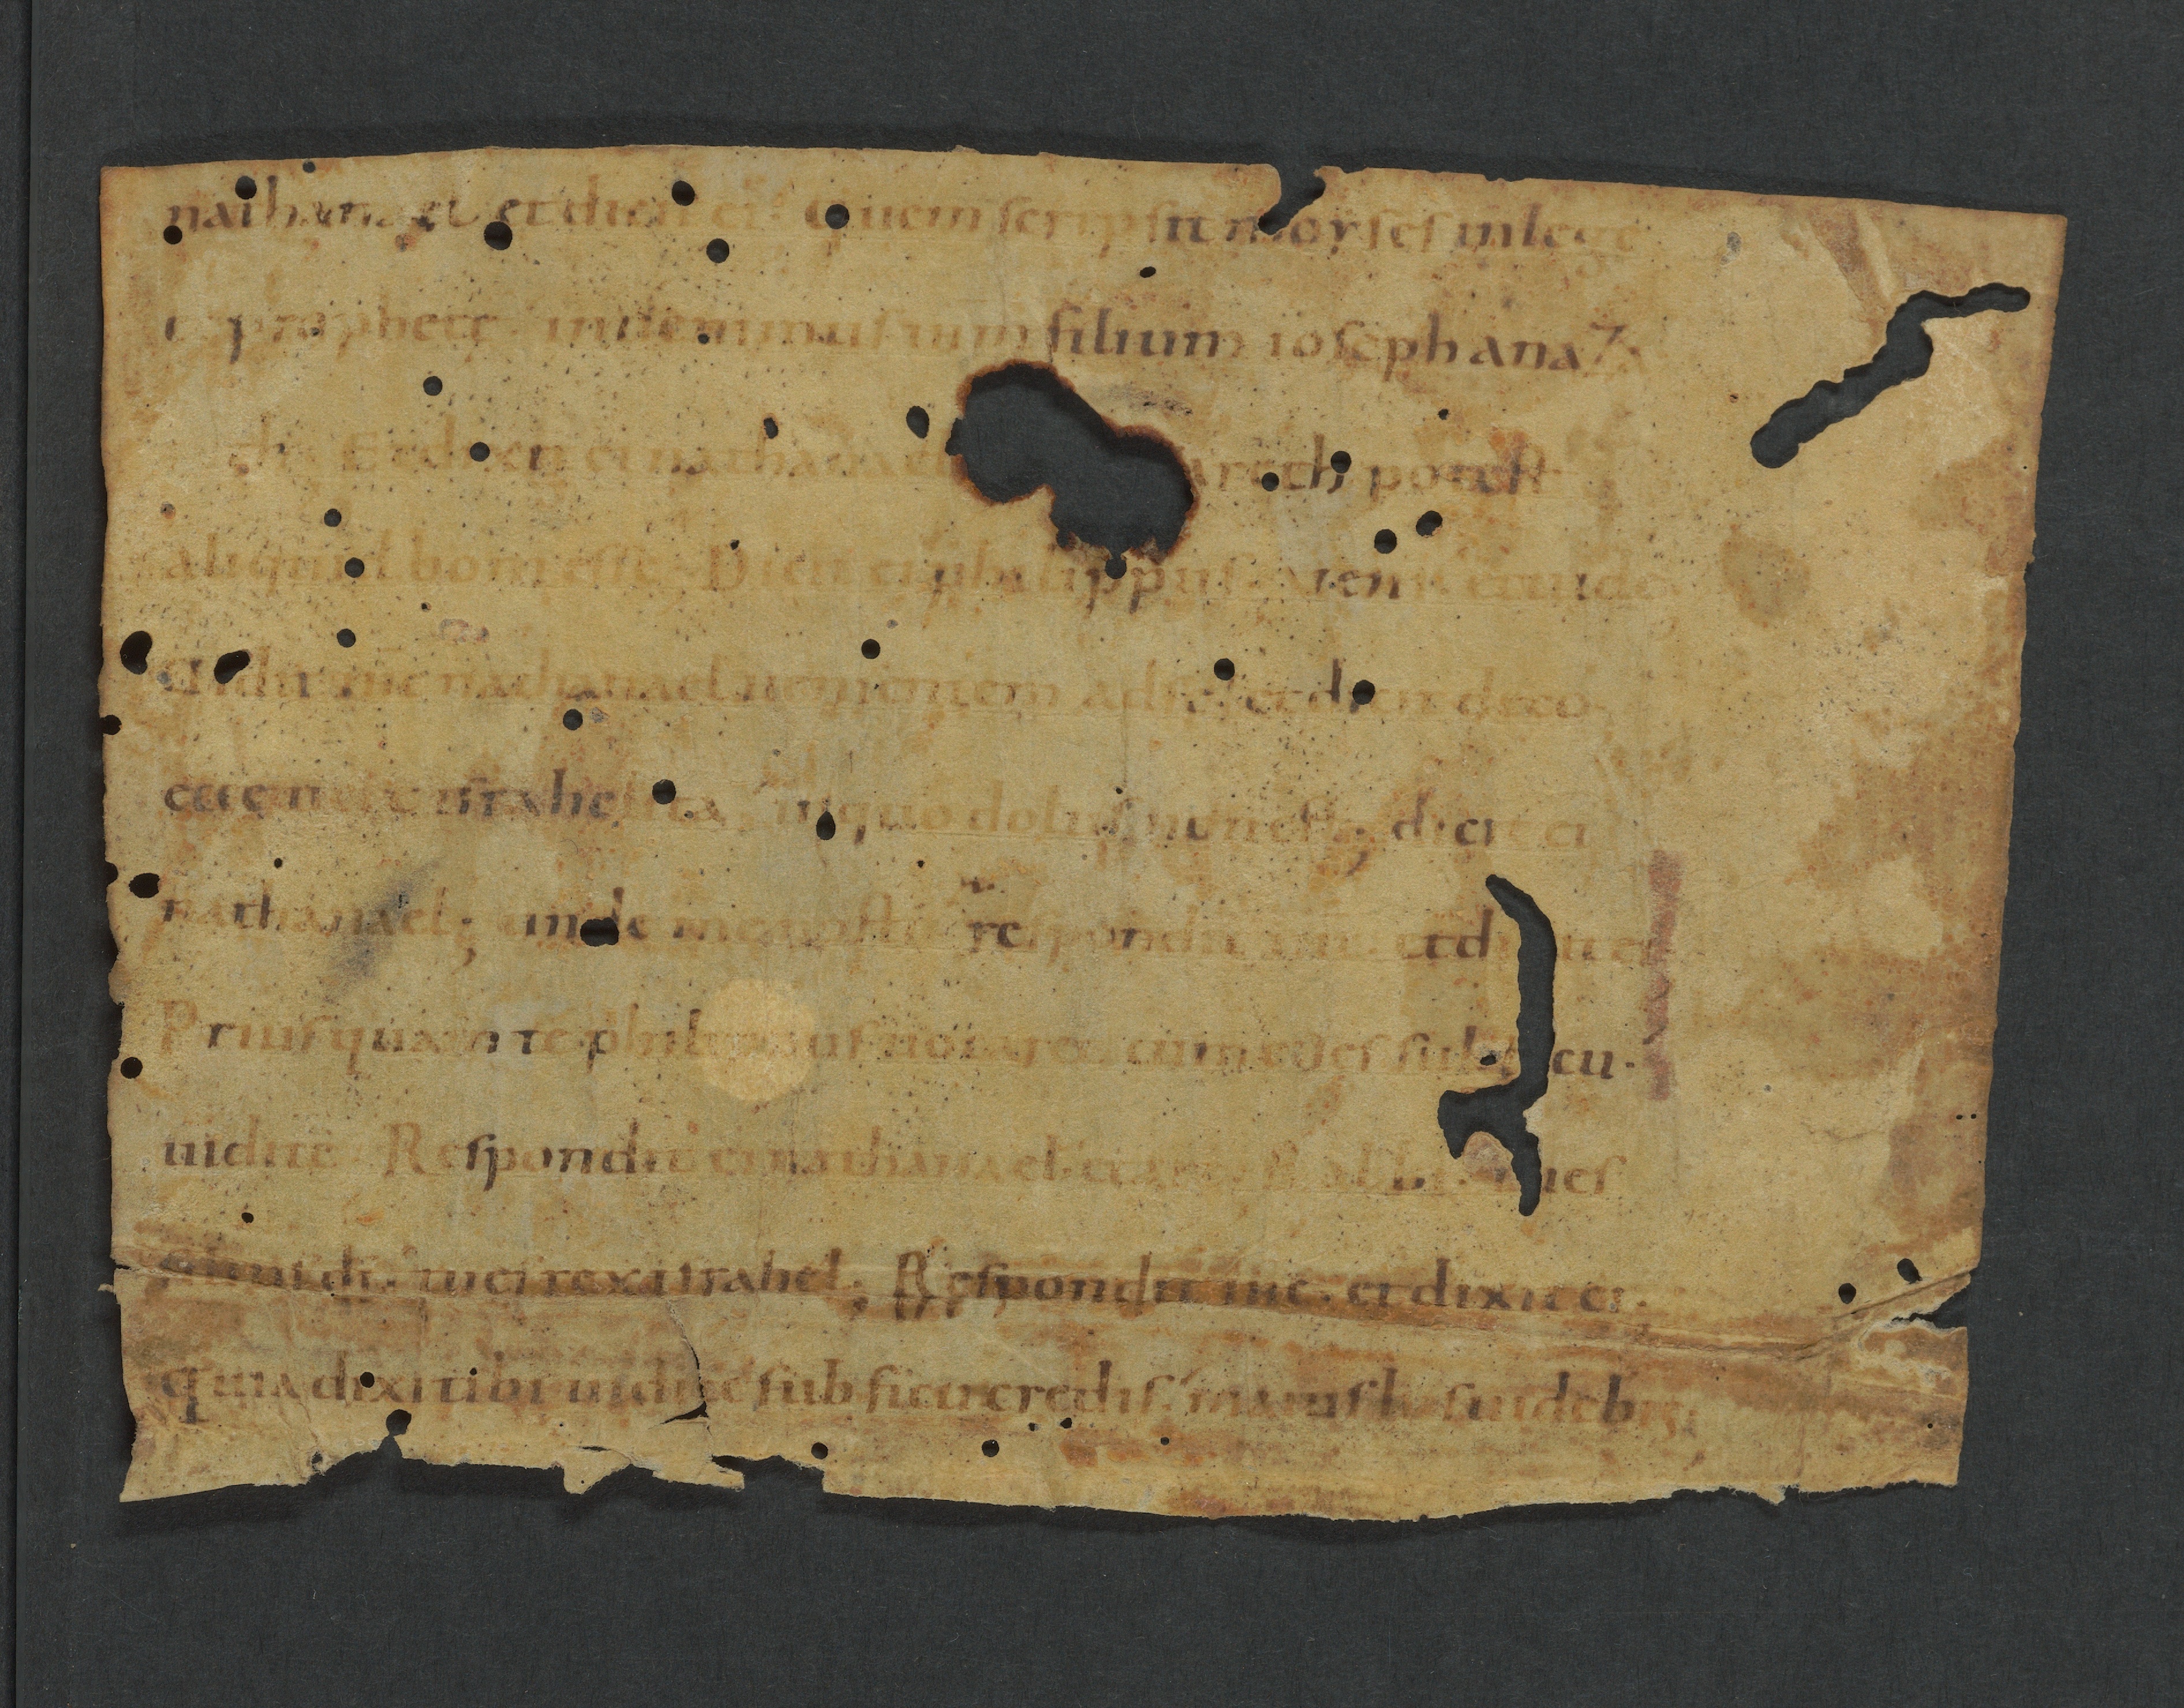 nathanael et dicit ei Quem scripsit moyses in lege
et prophete inuenimus ihm filium ioseph anaza
reth Et dixit ei nathanael areth potest
aliquid boni esse Dicit ei philippus ueni et uide
Uidit ihc nathanael uenientem ad se et dicit de eo
ecce uere israhelita in quo dolus non est; dicit ei
nathanael; unde me nosti respondit ihc et dixit ei
Priusquam te philippus uocaret cum esses sub ficu.
uidi te. Respondit ei nathanael et ait. Rabbi tu es
filius di. tu es rex israhel; Respondit ihc. et dixit ei.
quia dixi tibi uidi te sub ficu credis. maius his uidebis